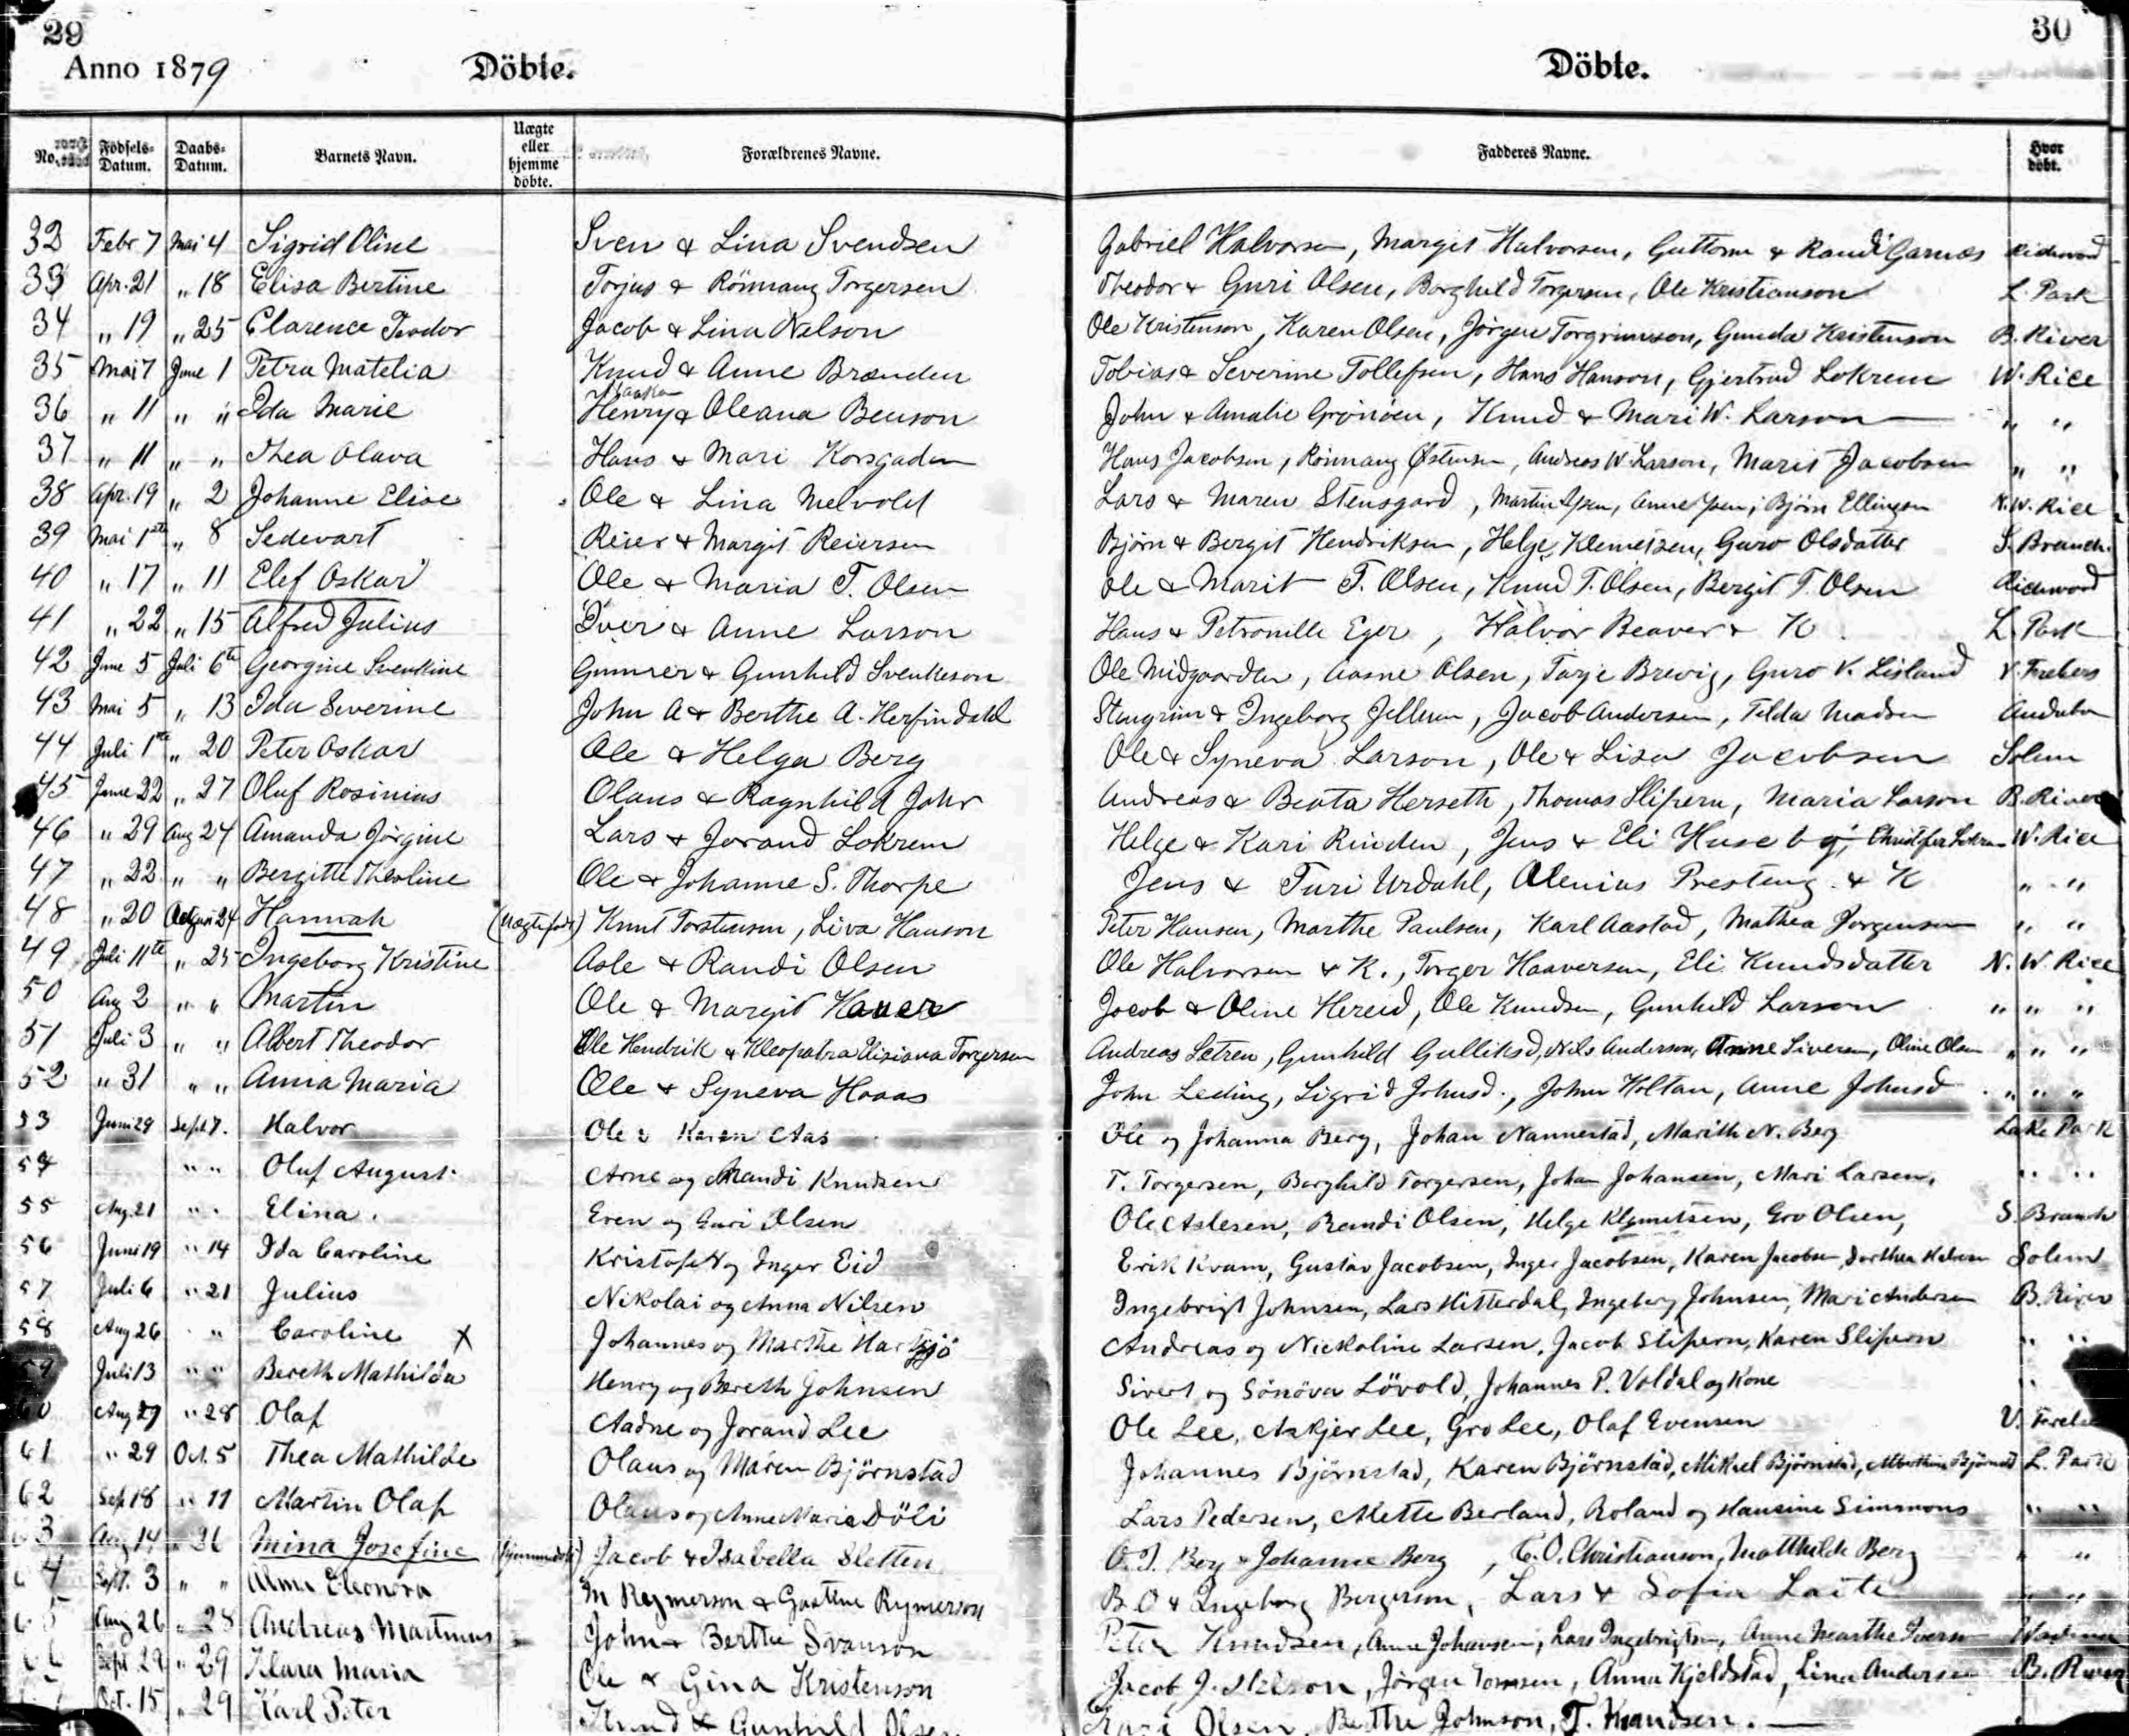 29
30
Anno 1879 Döbte. Döbte.
No. Födsels-Datum. Daabs-Datum. Barnets Navn. Uægte eller hjemme döbte. Forældrenes Navne. Fadderes Navne. Hvor döbt.
32 Febr 7 Mai 4 Sigrid Oline Sven & Lina Svendsen Gabriel Halvorsen, Margit Halvorsen, Guttorm & Randi Garnæs Richwood
33 Apr. 21 " 18 Elisa Bertine Torjus & Rönnaug Torgersen Theodor & Guri Olsen, Borghild Torgersen, Ole Kristianson L. Park
34 " 19 " 25 Clarence Teodor Jacob & Lina Nelson Ole Kristenson, Karen Olsen, Jörgen Torgrimson, Gunda Kristenson B. River
35 Mai 7 June 1 Petra Matelia Knud & Anne Brænden Tobias & Severine Tollefsen, Hans Hanson, Gjertrud Lokrem W. Rice
36 " 11 " " Ida Marie Henry & Oleana Benson John & Amalie Grönöen, Knud & Mari W. Larson " "
37 " 11 " " Thea Olava Hans & Mari Korsgaden Hans Jacobsen, Rönnaug Østensen, Andreas W. Larson, Marit Jacobsen " "
38 Apr. 19 " 2 Johanne Elise Ole & Lina Melvold Lars & Maren Stensgard, Martin Ysen, Anne Ysen, Björn Ellingson N. W. Rice
39 Mai 1ste " 8 Sedevart Reier & Margit Reiersen Björn & Bergit Hendriksen, Helge Klemetsen, Guro Olsdatter S. Branch.
40 " 17 " 11 Elef Oskar Ole & Maria T. Olsen Ole & Marit T. Olsen, Knud T. Olsen, Bergit T. Olsen Richwood
41 " 22 " 15 Alfred Julius Iver & Anne Larson Hans & Petronille Eger, Halvor Beaver & K. L. Park
42 June 5 Juli 6te Georgine Svenkine Gunner & Gunhild Svenkeson Ole Midgaarden, Aasne Olsen, Tarje Brevig, Guro V. Lisland
43 Mai 5 " 13 Ida Severine John A & Berthe A. Herfindahl Stengrim & Ingeborg Jellum, Jacob Andersen, Tilda Madsen Audubon
44 Juli 1ste " 20 Peter Oskar Ole & Helga Berg Ole & Syneva Larson, Ole & Lisa Jacobsen Solem
45 June 22 " 27 Oluf Rosinius Olaus & Ragnhild Johr Andreas & Beata Herseth, Thomas Slipern, Maria Larson B. River
46 " 29 Aug 24 Amanda Jörgine Lars & Jorand Lokrem Helge & Kari Rinden, Jens & Eli Huseby, Christofer Lokrem W. Rice
47 " 22 " " Bergitte Theoline Ole & Johanne S. Thorpe Jens & Turi Urdahl, Olenius Presteng & K " "
48 " 20 24 Hannah (Uægtefödt) Knut Torstensen, Liva Hanson Peter Hansen, Marthe Paulsen, Karl Aastad, Mathea Jorgensen " "
49 Juli 11te " 25 Ingeborg Kristine Asle & Randi Olsen Ole Halvorsen & K., Torger Haaversen, Eli Knudsdatter N. W. Rice
50 Aug 2 " " Martin Ole & Margit Hauer Jacob & Oline Hereid, Ole Knudsen, Gunhild Larson " " "
51 Juli 3 " " Albert Theodor Ole Hendrik & Kleopatra Elisiana Torgersen Andreas Letren, Gunhild Gulliksd, Nils Anderson, Anne Siversen, Oline Olsen " " "
52 " 31 " " Anna Maria Ole & Syneva Haaas John Leding, Sigrid Johnsd., John Holtan, Anne Johnsd " " "
53 Juni 29 Sept 7. Halvor Ole & Karen Aas Ole og Johanna Berg, Johan Nannestad, Marith N. Berg Lake Park
54 " " Oluf August. Arne og Randi Knudsen T. Torgersen, Borghild Torgersen, Johan Johansen, Mari Larsen, " "
55 Aug. 21 " " Elina. Even og Guri Olsen Ole Aslesen, Randi Olsen, Helge Klemetsen, Gro Olsen, S. Branch
56 Juni 19 " 14 Ida Caroline Kristofer og Inger Eid Erik Kvam, Gustav Jacobsen, Inger Jacobsen, Karen Jacobsen, Dorthea Solem
57 Juli 6 " 21 Julius Nikolai og Anna Nilsen Ingebrigt Johnsen, Lars Hitterdal, Ingeborg Johnsen, Mari Andersen B. River
58 Aug 26 " Caroline X Johannes og Marthe Hartsjö Andreas og Nickoline Larsen, Jacob Slipern, Karen Slipern " "
59 Juli 13 " " Bereth Mathilda Henry og Bereth Johnsen Sivert og Sönöva Lövold, Johannes P. Voldal og Kone "
60 Aug 27 " 28 Olaf Aadne og Jorand Lee Ole Lee, Askjer Lee, Gro Lee, Olaf Evensen
61 " 29 Oct. 5 Thea Mathilde Olaus og Maren Björnstad Johannes Björnstad, Karen Björnstad, Mikkel Björnstad, Björnstad L. Park
62 Sept 18 " 11 Martin Olaf Olaus og Anne Maria Döli Lars Pedersen, Mette Berland, Roland og Hansine Simmons " "
63 Aug 14 " 26 Mina Josefine (hjemmedöbt) Jacob & Isabella Sletten O. J. Berg & Johanne Berg, C. O. Christianson, Matthilde Berg " "
64 Sept. 3 " " Alma Eleonora M Reymerson & Gustine Rymerson B. O & Ingeborg Bergerson, Lars & Sofia Laite " "
65 Aug 26 " 28 Andreas Martinus John & Berthe Svanson Peter Knudsen, Anne Johansen, Lars Ingebrigtsen, Anne Marthe Iverson
66 Sept 29 " 29 Klara Maria Ole & Gina Kristenson Jacob J. Nelson, Jörgen Tomsen, Anna Kjeldstad, Lina Andersen B. River
Oct. 15 " 29 Karl Peter Knud & Gunhild Olsen Kari Olsen, Berthe Johnson, T. Knudsen.